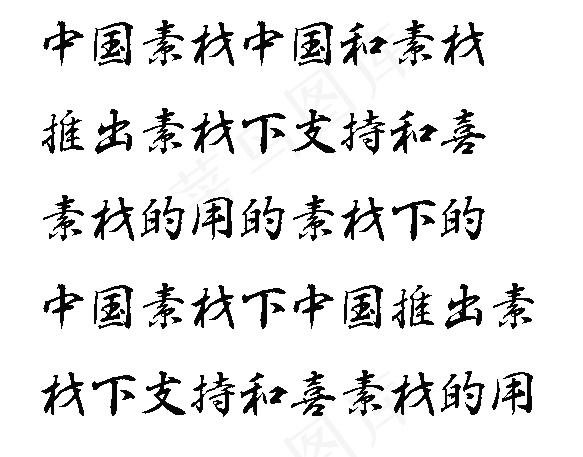 中国素材中国和素材
推出素材下支持和喜
素材的用的素材下的
中国素材下中国推出素
材下支持和喜素材的用